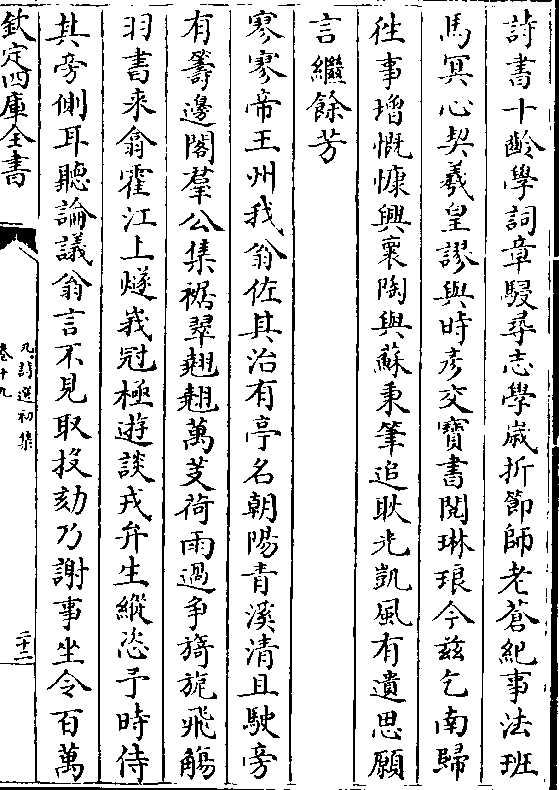 詩書十齡學詞章駸尋志學歲折節師老蒼紀事法班
馬冥心契羲皇謬與時彦交寶書閲琳琅今兹乞南歸
徃事増慨慷興衰陶與蘇秉筆追耿光凱風有遺思願
言繼餘芳
寥寥帝王州我翁佐其治有亭名朝陽青溪清且駛旁
有籌邊閣羣公集裾翠翹翹萬芰荷雨過争旖旎飛觴
羽書来翕霍江上燧峩冠極遊談戎弁生縱恣予時侍
其旁側耳聽論議翁言不見取投劾乃謝事坐令百萬
欽定四庫全書
元詩選初集
卷十九
二十二